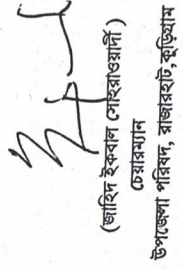 (জাহিদ ইকবাল সোহরাওয়ার্দী)
চেয়ারম্যান
উপজেলা পরিষদ, রাজারহাট, কুড়িগ্রাম